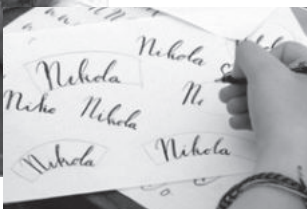 Nikola
Nikola
Niko
Nikola
Ni
Nikola
Nikola